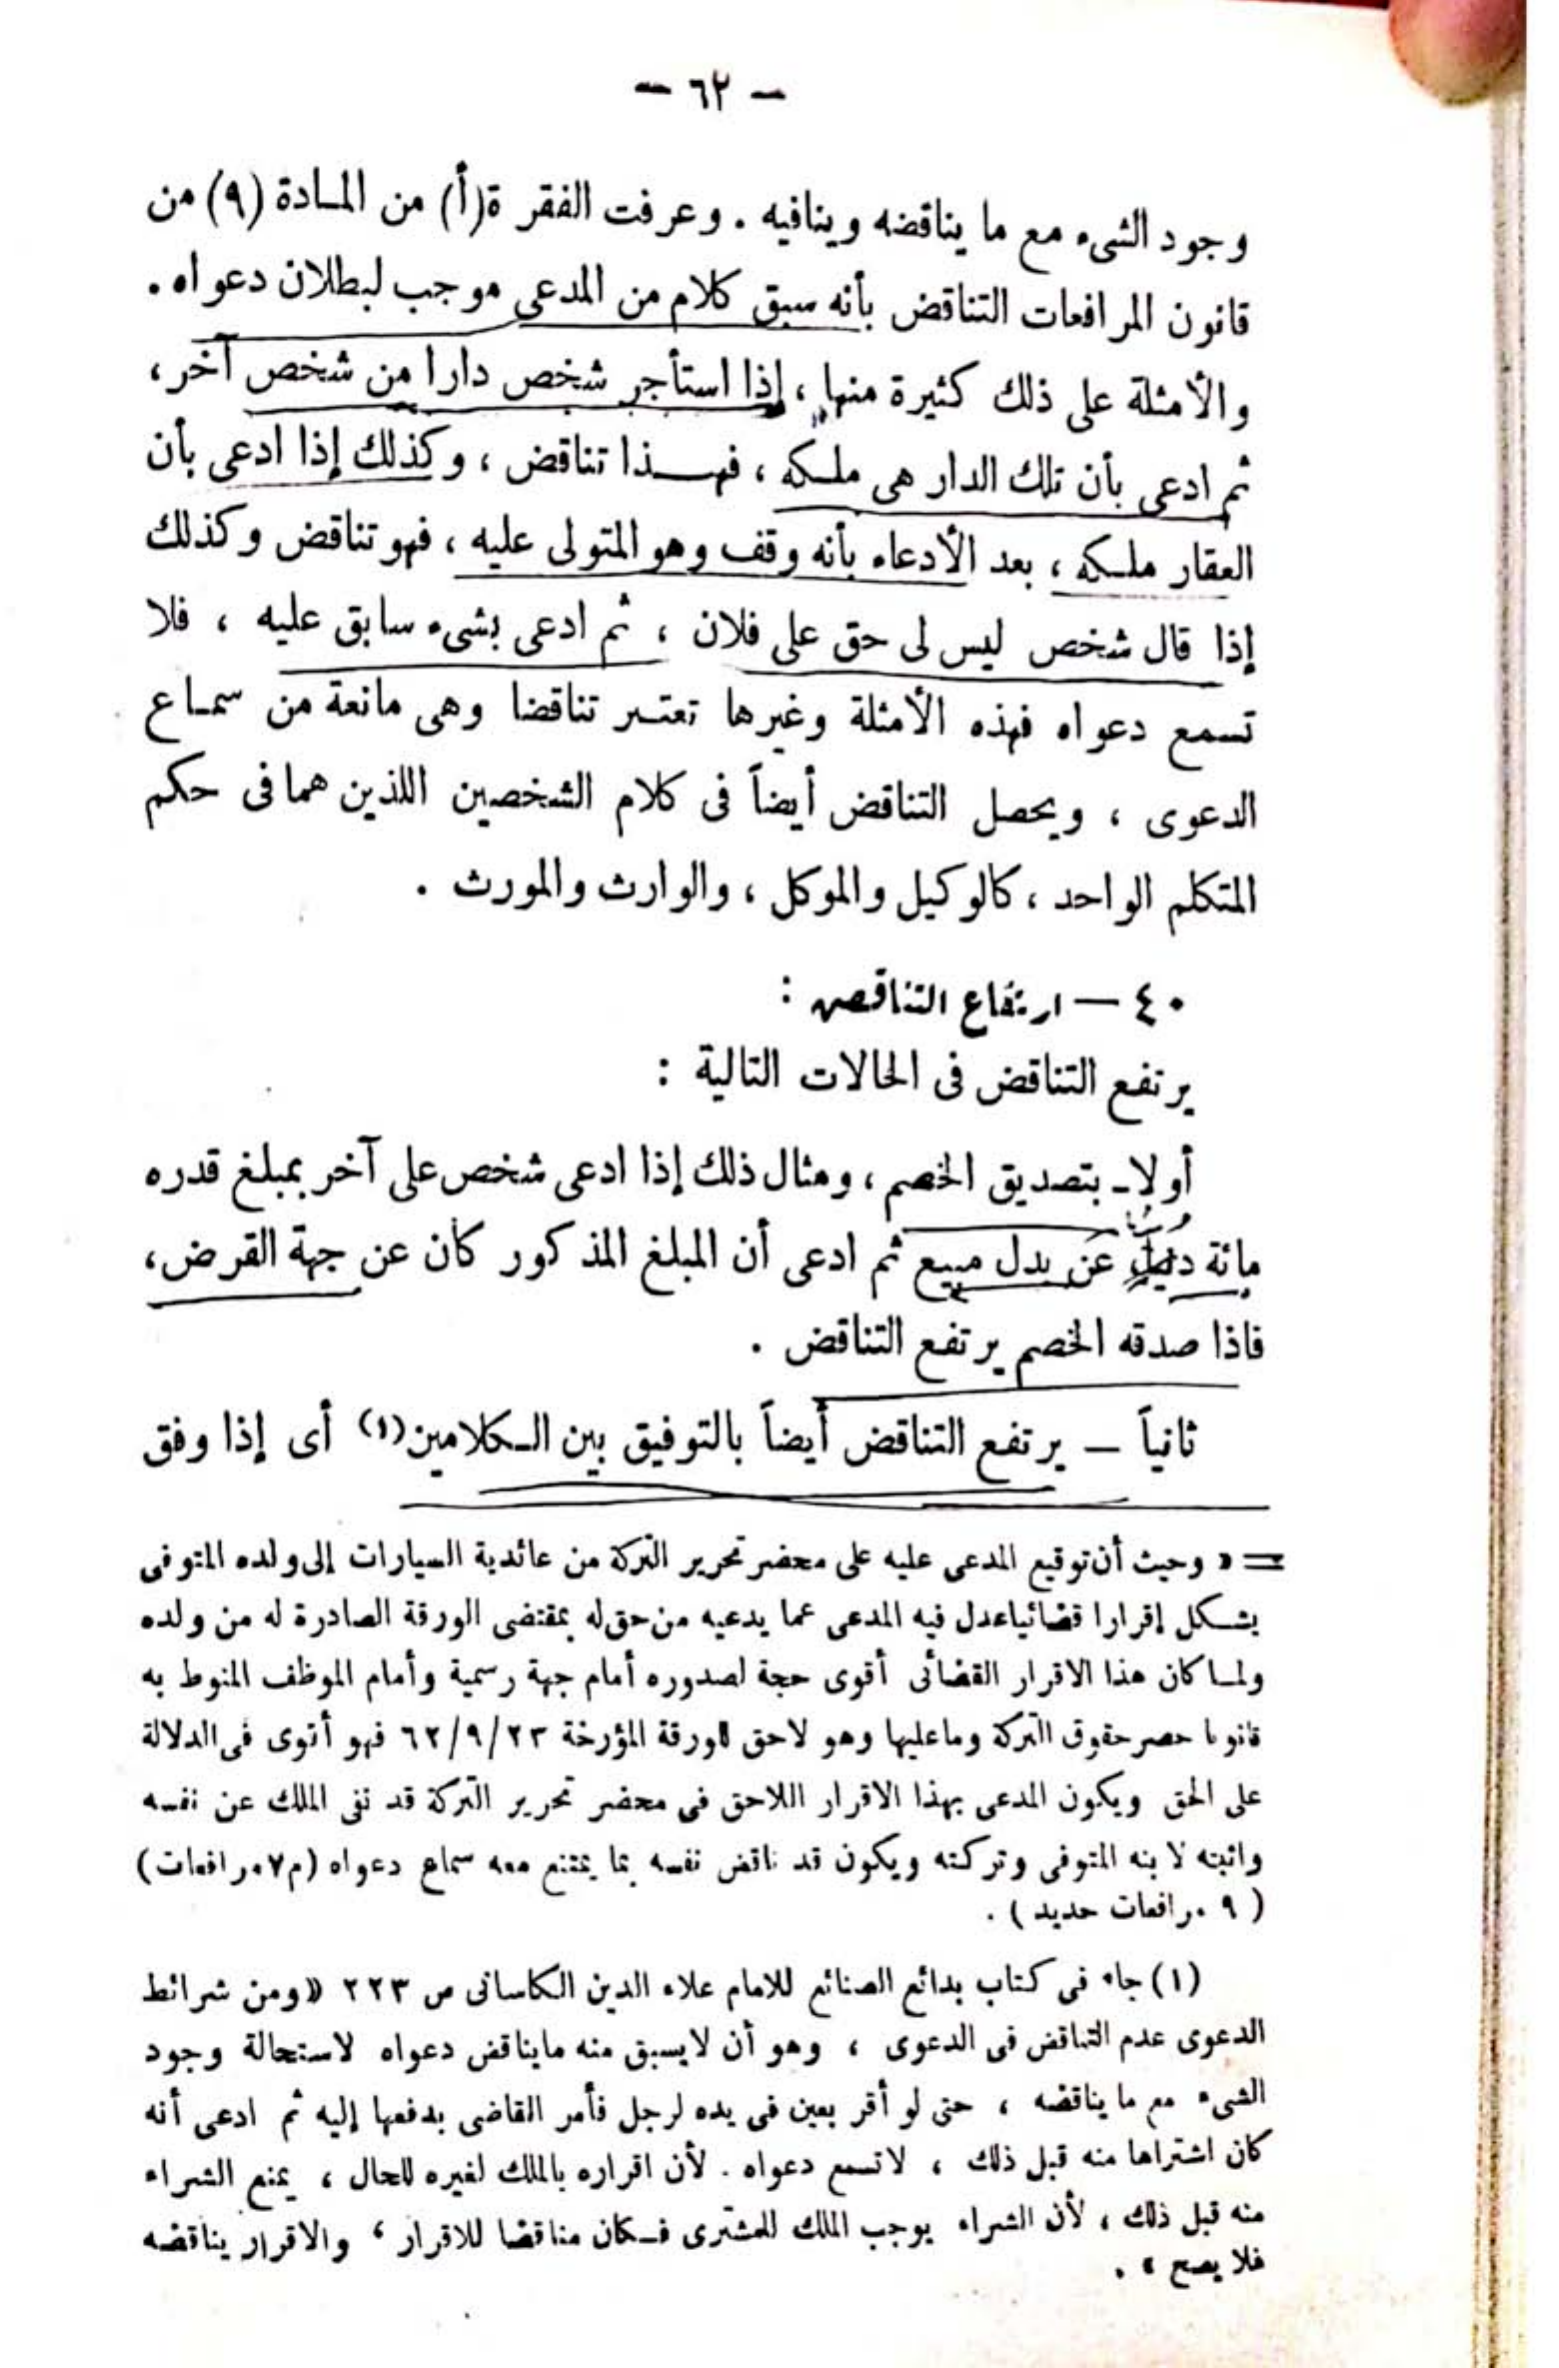 — ٦٢ —
وجود الشىء مع ما يناقضه وينافيه . وعرفت الفقر ة(أ) من المـادة (٩) من
قانون المرافعات التناقض بأنه سبق كلام من المدعى موجب لبطلان دعواه .
والأمثلة على ذلك كثيرة منها ، إذا استأجر شخص دارا من شخص آخر ،
ثم ادعى بأن تلك الدار هى ملـكه ، فهـــذا تناقض ، وكذلك إذا ادعى بأن
العقار ملـكه ، بعد الأدعاء بأنه وقف وهو المتولى عليه ، فهو تناقض وكذلك
إذا قال شخص ليس لى حق على فلان ، ثم ادعى بشىء سابق عليه ، فلا
تسمع دعواه فهذه الأمثلة وغيرها تعتـبر تناقضا وهى مانعة من سمـاع
الدعوى ، ويحصل التناقض أيضاً فى كلام الشخصين اللذين هما فى حكم
المتكلم الواحد ، كالوكيل والموكل ، والوارث والمورث .
٤٠ — ارتفاع التناقض :
يرتفع التناقض فى الحالات التالية :
أولا ـ بتصديق الخصم ، ومثال ذلك إذا ادعى شخص على آخر بمبلغ قدره
مائة عن بدل مبيع ثم ادعى أن المبلغ المذكور كان عن جهة القرض ،
فاذا صدقه الخصم يرتفع التناقض .
ثانياً — يرتفع التناقض أيضاً بالتوفيق بين الـكلامين(١) أى إذا وفق
= « وحيث أن توقيع المدعى عليه على محضر تحرير التركة من عائدية السيارات إلى ولده المتوفى
يشـكل إقرارا قضائيا عدل فيه المدعى عما يدعيه من حق له بمقتضى الورقة الصادرة له من ولده
ولمـا كان هذا الاقرار القضائى أقوى حجة لصدوره أمام جهة رسمية وأمام الموظف المنوط به
قانونا حصر حقوق التركة وماعليها وهو لاحق للورقة المؤرخة ٦٢/٩/٢٣ فهو أقوى فى الدلالة
على الحق ويكون المدعى بهذا الاقرار اللاحق فى محضر تحرير التركة قد نفى الملك عن نفسه
واثبته لابنه المتوفى وتركته ويكون قد ناقض نفسه بما يمتنع معه سماع دعواه (م٧ مرافعات)
( ٩ مرافعات جديد ) .
(١) جاء فى كتاب بدائع الصنائع للامام علاء الدين الكاسانى ص ٢٢٣ « ومن شرائط
الدعوى عدم التناقض فى الدعوى ، وهو أن لايسبق منه مايناقض دعواه لاستحالة وجود
الشىء مع ما يناقضه ، حتى لو أقر بعين فى يده لرجل فأمر القاضى بدفعها إليه ثم ادعى أنه
كان اشتراها منه قبل ذلك ، لاتسمع دعواه . لأن اقراره بالملك لغيره للحال ، يمنع الشراء
منه قبل ذلك ، لأن الشراء يوجب الملك للمشترى فـكان مناقضا للاقرار ، والاقرار يناقضه
فلا يصح » .